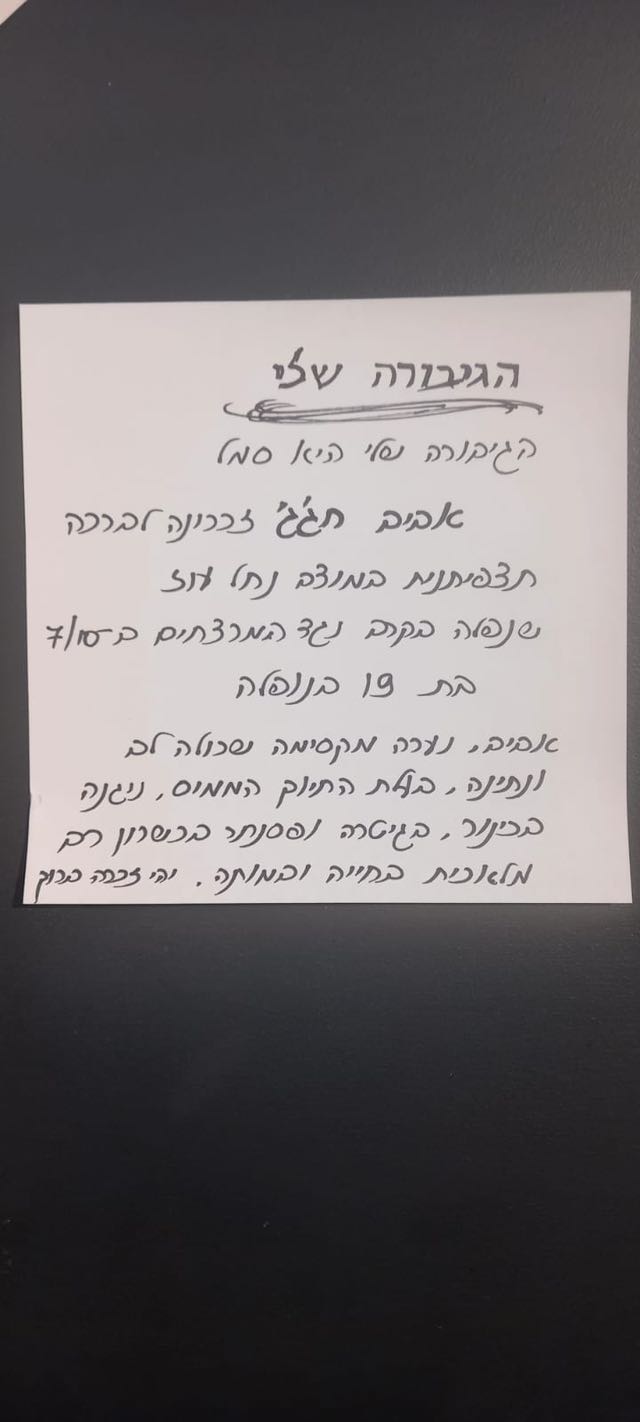 הגיבורה שלי
הגיבורה שלי היא סמל
אביב חג'ג' זכרונה לברכה
תצפיתנית במוצב נחל עוז
שנפלה בקרב נגד המרצחים ב-7/10
בת 19 בנופלה
אביב, נערה מקסימה שכולה לב
ונתינה, בעלת החיוך הממיס, ניגנה
בכינור, בגיטרה ופסנתר בכשרון רב
מלאכית בחייה ובמותה. יהי זכרה ברוך